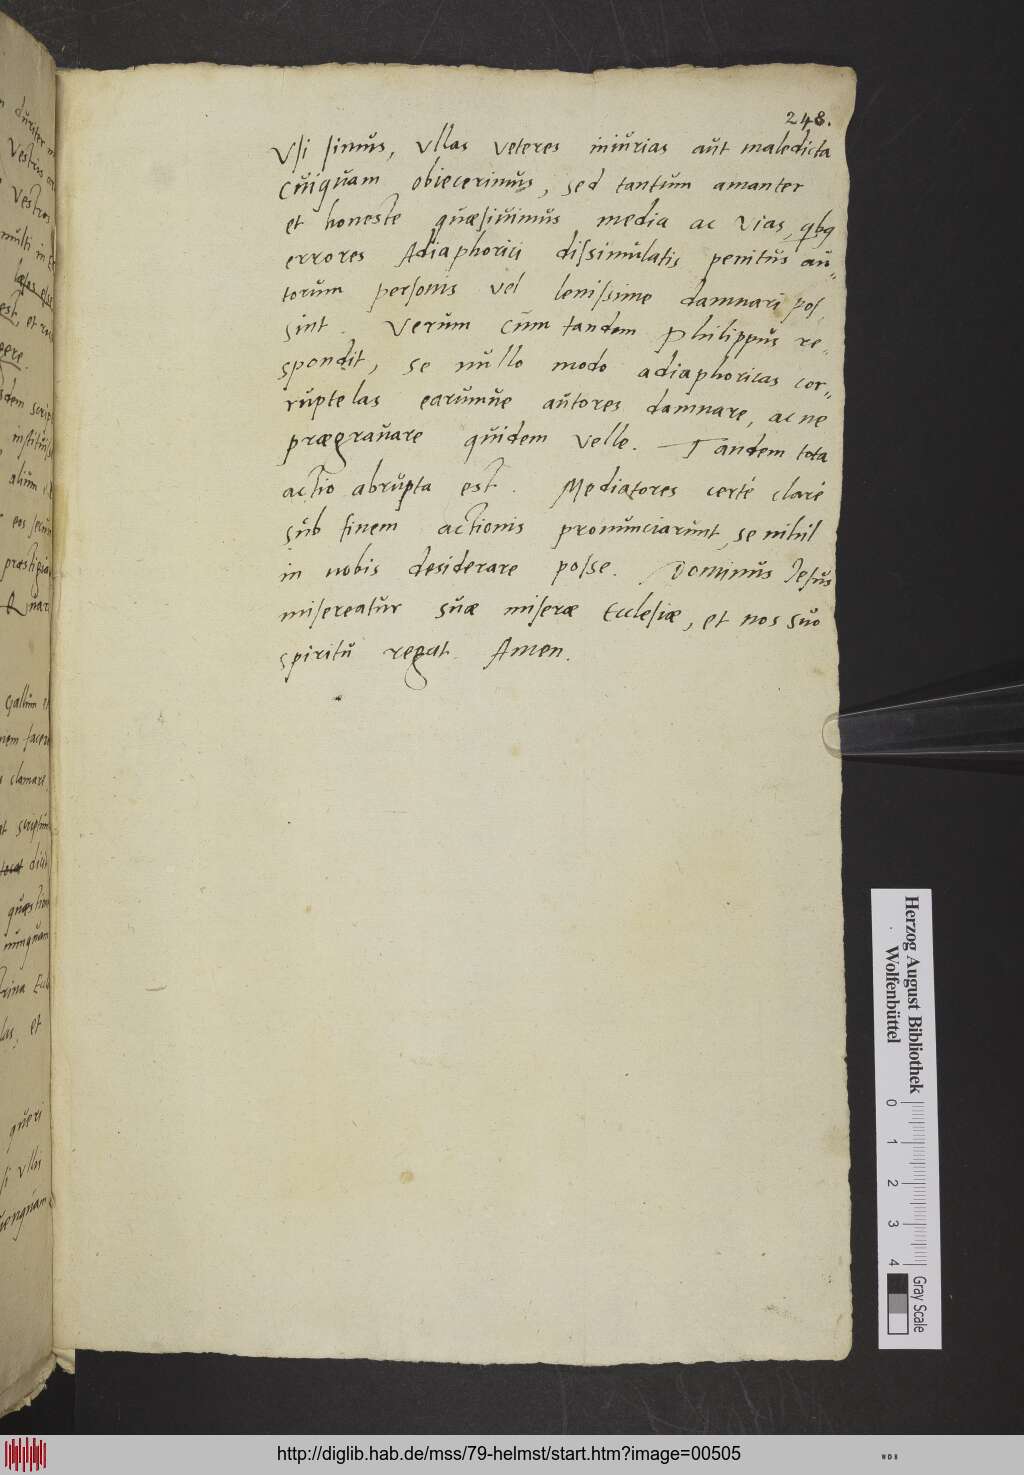 248.
Vsi simus, vllas veteres iniurias aut maledicta
cuiquam obiecerimus, sed tantum amanter
et honeste quæsiuimus media ac vias, qbq
errores Adiaphorici dissimulatis penitus au„
torum personis vel lenissime damnari pos„
sint. Verum cum tandem Philippus re„
spondit, se nullo modo adiaphoricas cor„
ruptelas earumue autores damnare, ac ne
prægrauare quidem velle. Tandem tota
actio abrupta est. Mediatores certé claré
sub finem actionis pronunciarunt, se nihil
in nobis desiderare posse. Dominus Jesus
misereatur suæ miseræ Ecclesiæ, et nos suo
spiritu regat. Amen.
Herzog August Bibliothek
Wolfenbüttel
0 1 2 3 4
Gray Scale
http://diglib.hab.de/mss/79-helmst/start.htm?image=00505